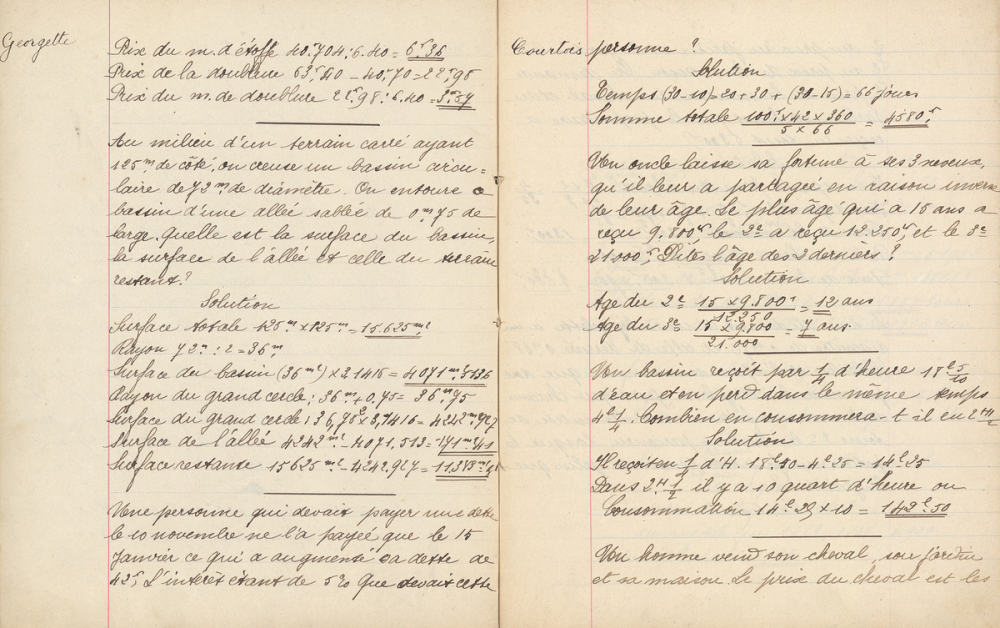 Georgette
Prix du m. d'étoffe 40.704 : 6.40 = 6f,36
Prix de la doublure 63f,40 - 40,70 = 22f,98
Prix du m. de doublure 22f,98 : 6.40 =
Au milieu d'un terrain carré ayant
125m de côté, on creuse un bassin circu=
laire de 72m de diamètre. On entoure ce
bassin d'une allée sablée de 0m,75 de
large. Quelle est la surface du bassin,
la surface de l'allée et celle du terrain
restant ?
Solution
Surface totale 125m × 125m = 15.625m²
Rayon 72m : 2 = 36m
Surface du bassin (36m²) × 3,1416 = 4071m,5136
Rayon du grand cercle : 36m + 0,75 = 36m,75
Surface du grand cercle × 3,1416 = 4242m,927
Surface de l'allée 4242m² - 4071,513 = 171m,41
Surface restante 15625m² - 4242.927 =
Une personne qui devait payer une dette
le 10 novembre ne l'a payée que le 15
Janvier ce qui a augmenté sa dette de
42f. L'intérêt étant de 5% que devait cette
Courtois personne ?
Solution
Temps (30-10) = 20 + 30 + (30-15) = 66 jours
Somme totale 100f × 42 × 360 / 5 × 66 = 4580f
Un oncle laisse sa fortune à ses 3 neveux,
qu'il leur a partagée en raison inverse
de leur âge. Le plus âgé qui a 15 ans a
reçu 9.800f le 2e a reçu 12.250f et le 3e
21000f. Dites l'âge des 2 derniers ?
Solution
Age du 2e 15 × 9.800f / 12.250 = 12 ans
Age du 3e 15 × 9.800 / 21.000 = 7 ans
Un bassin reçoit par 1/4 d'heure 18l 5/10
d'eau et en perd dans le même temps
4l 1/4. Combien en consommera-t-il en 2H 1/2
Solution
Il reçoit en 1/4 d'H. 18l,50 - 4l,25 = 14l,25
Dans 2H 1/2 il y a 10 quart d'heure ou
Consommation 14l,25 × 10 = 142l,50
Un homme vend son cheval, son jardin
et sa maison. Le prix du cheval est les